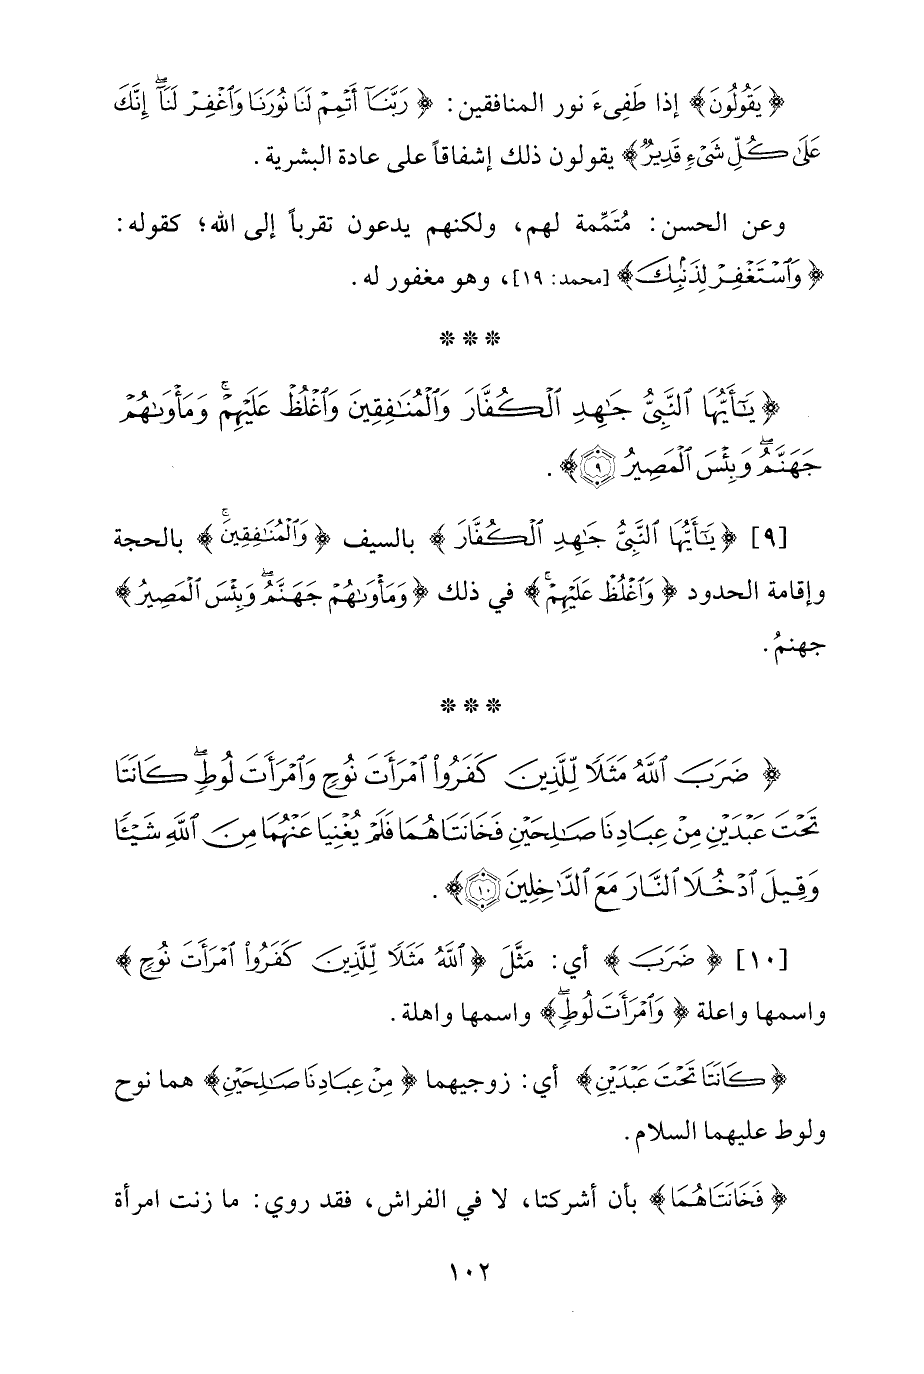 ﴿ يَقُولُونَ﴾ إذا طَفِىءَ نور المنافقين: ﴿ رَبَّنَآ أَتۡمِمۡ لَنَا نُورَنَا وَٱغۡفِرۡ لَنَآۖ إِنَّكَ
عَلَىٰ كُلِّ شَيۡءٖ قَدِيرٞ﴾ يقولون ذلك إشفاقاً على عادة البشرية.
وعن الحسن: مُتَمِّمة لهم، ولكنهم يدعون تقرباً إلى الله؛ كقوله:
﴿ وَٱسۡتَغۡفِرۡ لِذَنۢبِكَ﴾ [محمد: ١٩]، وهو مغفور له.
* * *
﴿ يَـٰٓأَيُّهَا ٱلنَّبِيُّ جَـٰهِدِ ٱلۡكُفَّارَ وَٱلۡمُنَـٰفِقِينَ وَٱغۡلُظۡ عَلَيۡهِمۡۚ وَمَأۡوَىٰهُمۡ
جَهَنَّمُۖ وَبِئۡسَ ٱلۡمَصِيرُ ۝٩﴾.
[٩] ﴿ يَـٰٓأَيُّهَا ٱلنَّبِيُّ جَـٰهِدِ ٱلۡكُفَّارَ ﴾ بالسيف ﴿ وَٱلۡمُنَـٰفِقِينَۚ ﴾ بالحجة
وإقامة الحدود ﴿ وَٱغۡلُظۡ عَلَيۡهِمۡۚ ﴾ في ذلك ﴿ وَمَأۡوَىٰهُمۡ جَهَنَّمُۖ وَبِئۡسَ ٱلۡمَصِيرُ ﴾
جهنمُ.
* * *
﴿ ضَرَبَ ٱللَّهُ مَثَلٗا لِّلَّذِينَ كَفَرُواْ ٱمۡرَأَتَ نُوحٖ وَٱمۡرَأَتَ لُوطٖۖ كَانَتَا
تَحۡتَ عَبۡدَيۡنِ مِنۡ عِبَادِنَا صَـٰلِحَيۡنِ فَخَانَتَاهُمَا فَلَمۡ يُغۡنِيَا عَنۡهُمَا مِنَ ٱللَّهِ شَيۡـٔٗا
وَقِيلَ ٱدۡخُلَا ٱلنَّارَ مَعَ ٱلدَّٰخِلِينَ ۝١٠﴾.
[١٠] ﴿ ضَرَبَ ﴾ أي: مَثَّلَ ﴿ ٱللَّهُ مَثَلٗا لِّلَّذِينَ كَفَرُواْ ٱمۡرَأَتَ نُوحٖ ﴾
واسمها واعلة ﴿ وَٱمۡرَأَتَ لُوطٖۖ﴾ واسمها واهلة.
﴿ كَانَتَا تَحۡتَ عَبۡدَيۡنِ ﴾ أي: زوجيهما ﴿ مِنۡ عِبَادِنَا صَـٰلِحَيۡنِ﴾ هما نوح
ولوط عليهما السلام.
﴿ فَخَانَتَاهُمَا﴾ بأن أشركتا، لا في الفراش، فقد روي: ما زنت امرأة
١٠٢